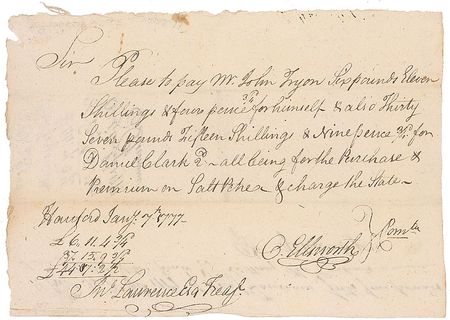 Sir
Please to pay Mr. John Tryon Six pounds Eleven
Shillings & four pence 3/4 for himself & also Thirty
Seven pounds Fifteen Shillings & Nine pence 3/4 for
Daniel Clark all being for the Purchase &
Premium on Salt Petre & charge the State
Hartford Jany. 7th 1777
£ 6. 11. 4 3/4
37. 15. 9 3/4
£ 44. 7. 2 1/2
O. Ellsworth } Comtee
Jno. Lawrence Esq Treasr.